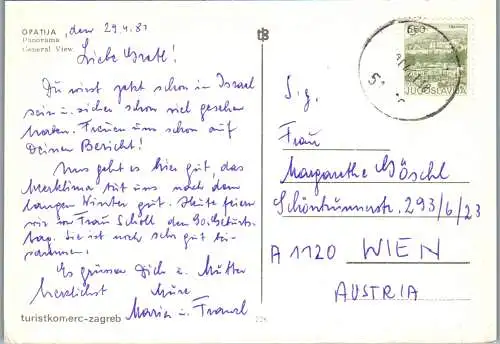 OPATIJA, den 29.4.81
Panorama
General View
Liebe Gretl!
Du wirst jetzt schon in Israel
sein u. sicher schon viel gesehen
haben. Freuen uns schon auf
Deinen Bericht!
Uns geht es hier gut, das
Meerklima tut uns nach dem
langen Winter gut. Heute feiern
wir Frau Scholl den 90. Geburts-
tag. Sie ist noch sehr gut bei-
sammen.
Es grüssen Dich u. Mutter
herzlichst Eure
Maria u. Franzl
turistkomerc-zagreb
tz
S. g.
Frau
Margarethe Göschl
Schönbrunnerstr. 293/6/23
A 1120 WIEN
AUSTRIA
JUGOSLAVIJA
51